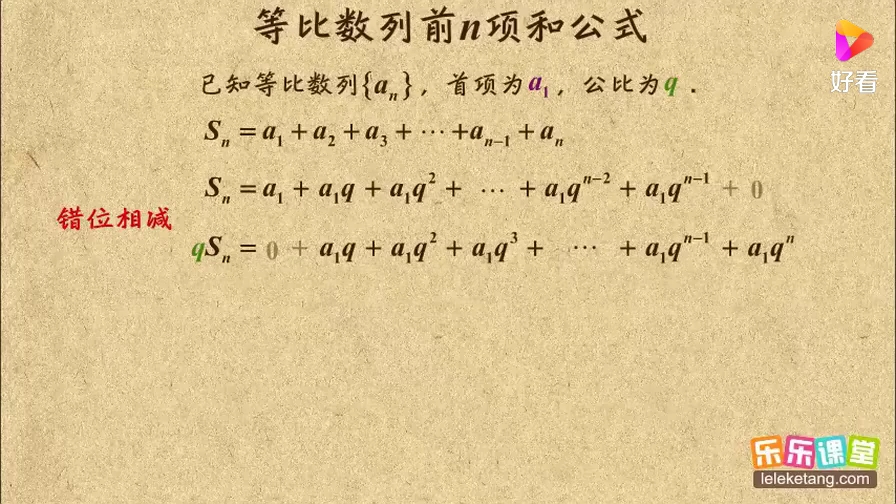 等比数列前n项和公式
好看
已知等比数列{aₙ}，首项为a₁，公比为q．
Sₙ = a₁ + a₂ + a₃ + ⋯ + aₙ₋₁ + aₙ
Sₙ = a₁ + a₁q + a₁q² + ⋯ + a₁qⁿ⁻² + a₁qⁿ⁻¹ + 0
错位相减
qSₙ = 0 + a₁q + a₁q² + a₁q³ + ⋯ + a₁qⁿ⁻¹ + a₁qⁿ
乐乐课堂
leleketang.com